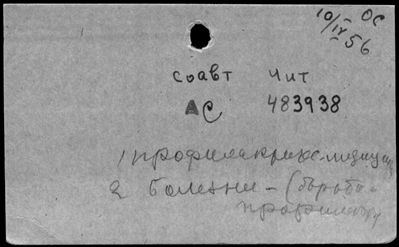 10/IV 56 ОС
соавт Чит
АС 483938
1 профилактик. медицин
2 Болезни - (борьба -
профилакт